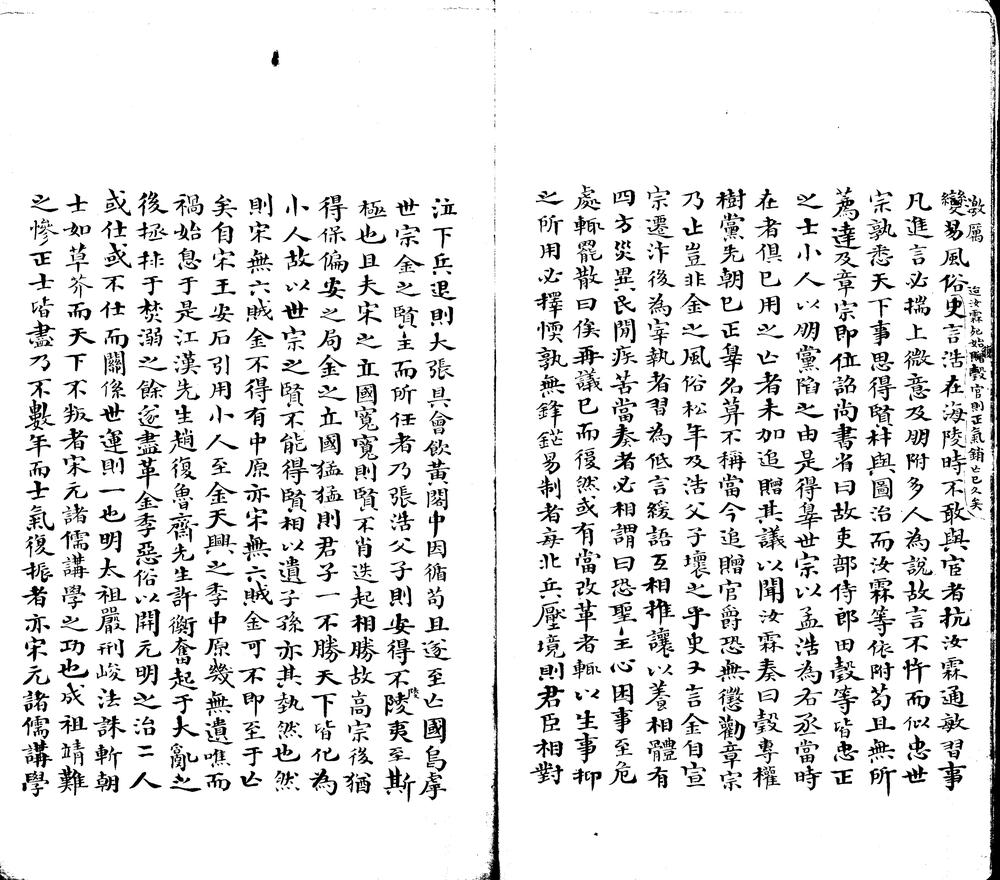 激厲
變易風俗史言浩在海陵時不敢與宦者抗汝霖通敏習事
迨汝霖死始贈轂官則正氣銷亡已久矣
凡進言必揣上微意及朋附多人為說故言不忤而似忠世
宗孰悉天下事思得賢材與圖治而汝霖等依附苟且無所
薦達及章宗即位詔尚書省曰故吏部侍郎田瑴等皆忠正
之士小人以朋黨陷之由是得辠世宗以孟浩為右丞當時
在者俱已用之亡者未加追贈其議以聞汝霖奏曰瑴專權
樹黨先朝已正辠名莫不稱當今追贈官爵恐無懲勸章宗
乃止豈非金之風俗松年及浩父子壞之乎史又言金自宣
宗遷汴後為宰執者習為低言緩語互相推讓以養相體有
四方災異民間疾苦當奏者必相謂曰恐聖主心困事至危
處輒罷散曰俟再議已而復然或有當改革者輒以生事抑
之所用必擇愞孰無鋒鋩易制者每北兵壓境則君臣相對
泣下兵退則大張具會飲黃閣中因循苟且遂至亡國烏虖
世宗金之賢主而所任者乃張浩父子則安得不陵夷至斯
極也且夫宋之立國寬寬則賢不肖迭起相勝故高宗後猶
得保偏安之局金之立國猛猛則君子一不勝天下皆化為
小人故以世宗之賢不能得賢相以遺子孫亦其執然也然
則宋無六賊金不得有中原亦宋無六賊金可不即至于亡
矣自宋王安石引用小人至金天興之季中原幾無遺噍而
禍始息于是江漢先生趙復魯齋先生許衡奮起于大亂之
後拯拼于焚溺之餘遂盡革金季惡俗以開元明之治二人
或仕或不仕而關係世運則一也明太祖嚴刑峻法誅斬朝
士如草芥而天下不叛者宋元諸儒講學之功也成祖靖難
之慘正士皆盡乃不數年而士氣復振者亦宋元諸儒講學